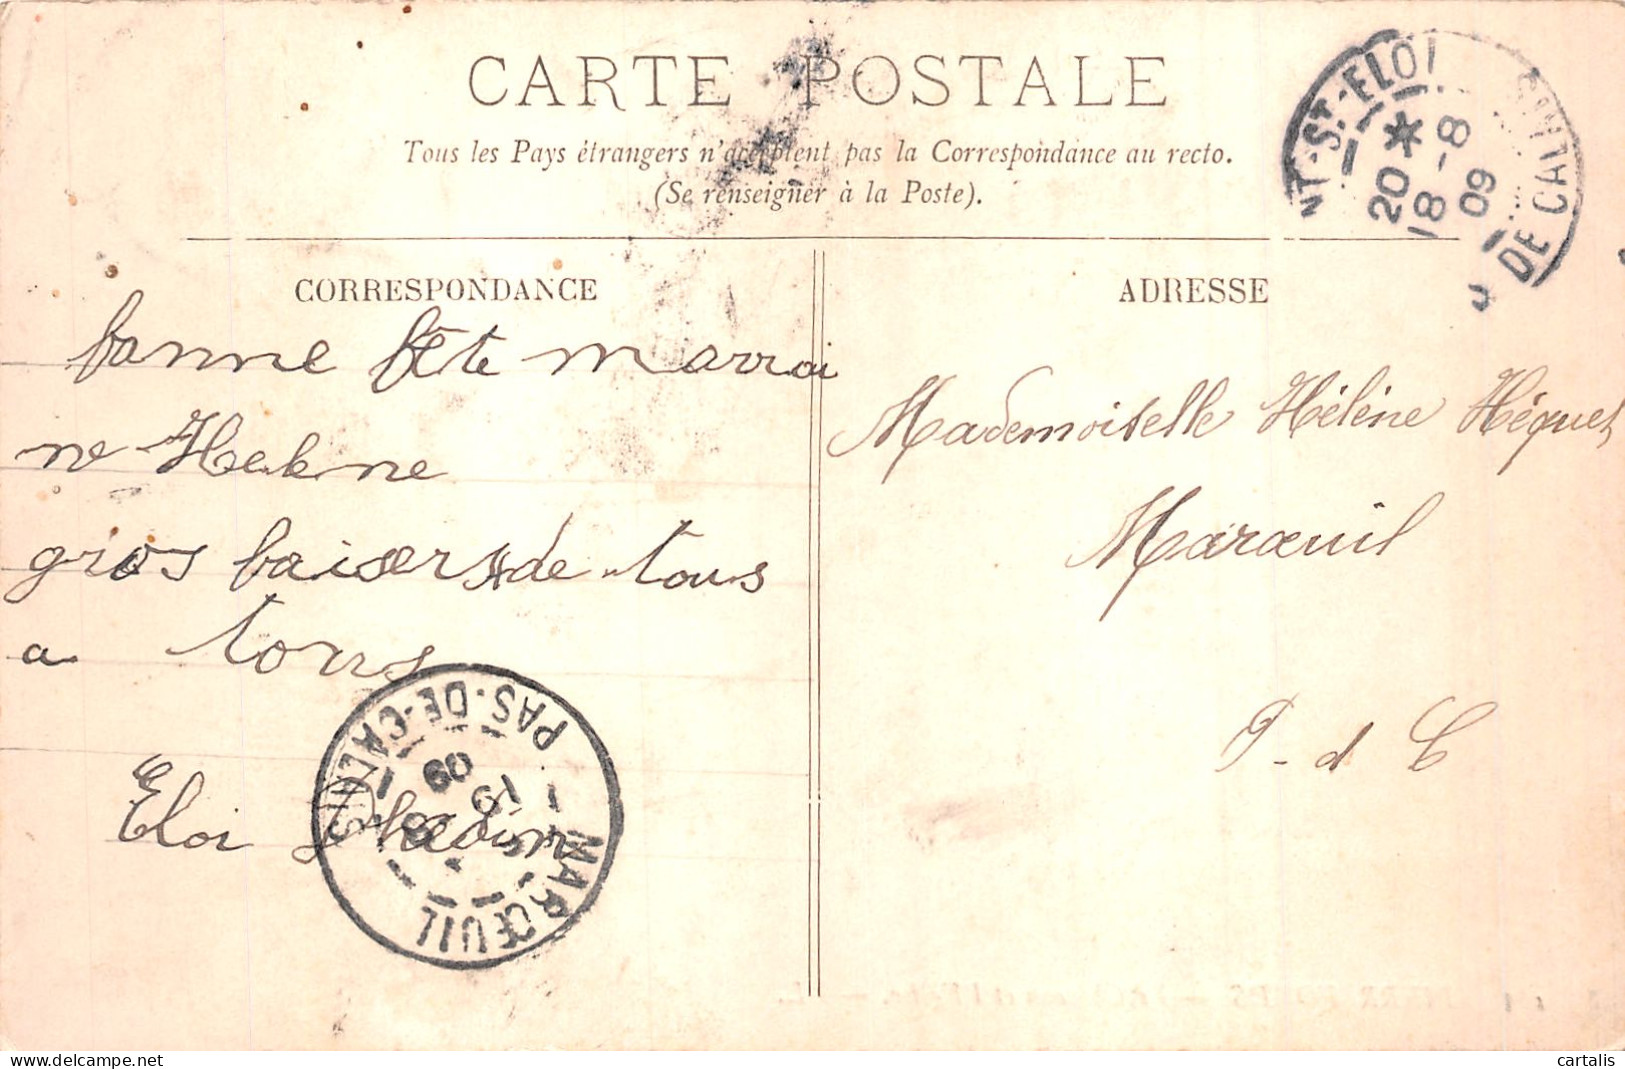 CARTE POSTALE
Tous les Pays étrangers n'acceptent pas la Correspondance au recto.
(Se renseigner à la Poste).
NT-ST-ELOI
20 *
18 -8
09
DE CALAIS
CORRESPONDANCE
bonne fête marrai
ne Helene
gros baisers de tous
a tous
Eloi
PAS-DE-CALAIS
19
09
MARŒUIL
ADRESSE
Mademoiselle Hélène Héquet
Marœuil
P-d C
cartalis
delcampe.net